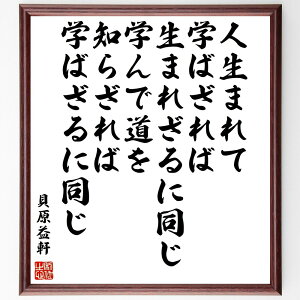 人生まれて
学ばざれば
生まれざるに同じ
学んで道を
知らざれば
学ばざるに同じ
貝原益軒